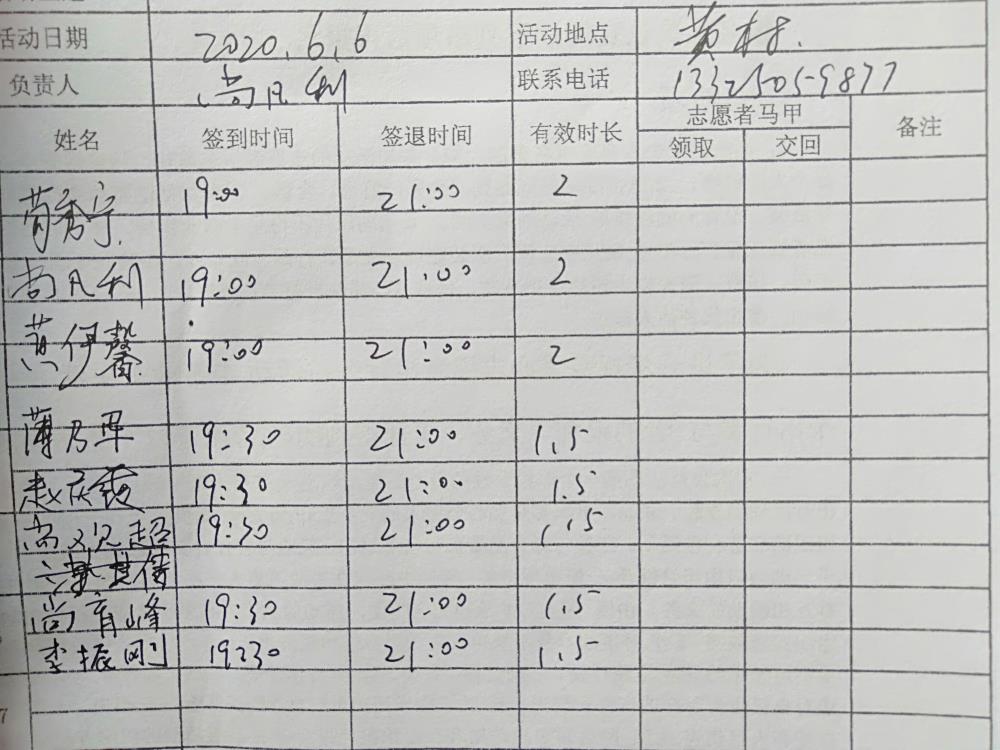 活动日期 2020.6.6 活动地点 黄村.
负责人 尚凡利 联系电话 13325059877
姓名 签到时间 签退时间 有效时长 志愿者马甲 备注
领取 交回
19:00 21:00 2
尚凡利 19:00 21:00 2
黄伊馨 19:00 21:00 2
薄乃军 19:30 21:00 1.5
赵庆霞 19:30 21:00 1.5
尚义超 19:30 21:00 1.5
尚育峰 19:30 21:00 1.5
李振刚 19:30 21:00 1.5
7